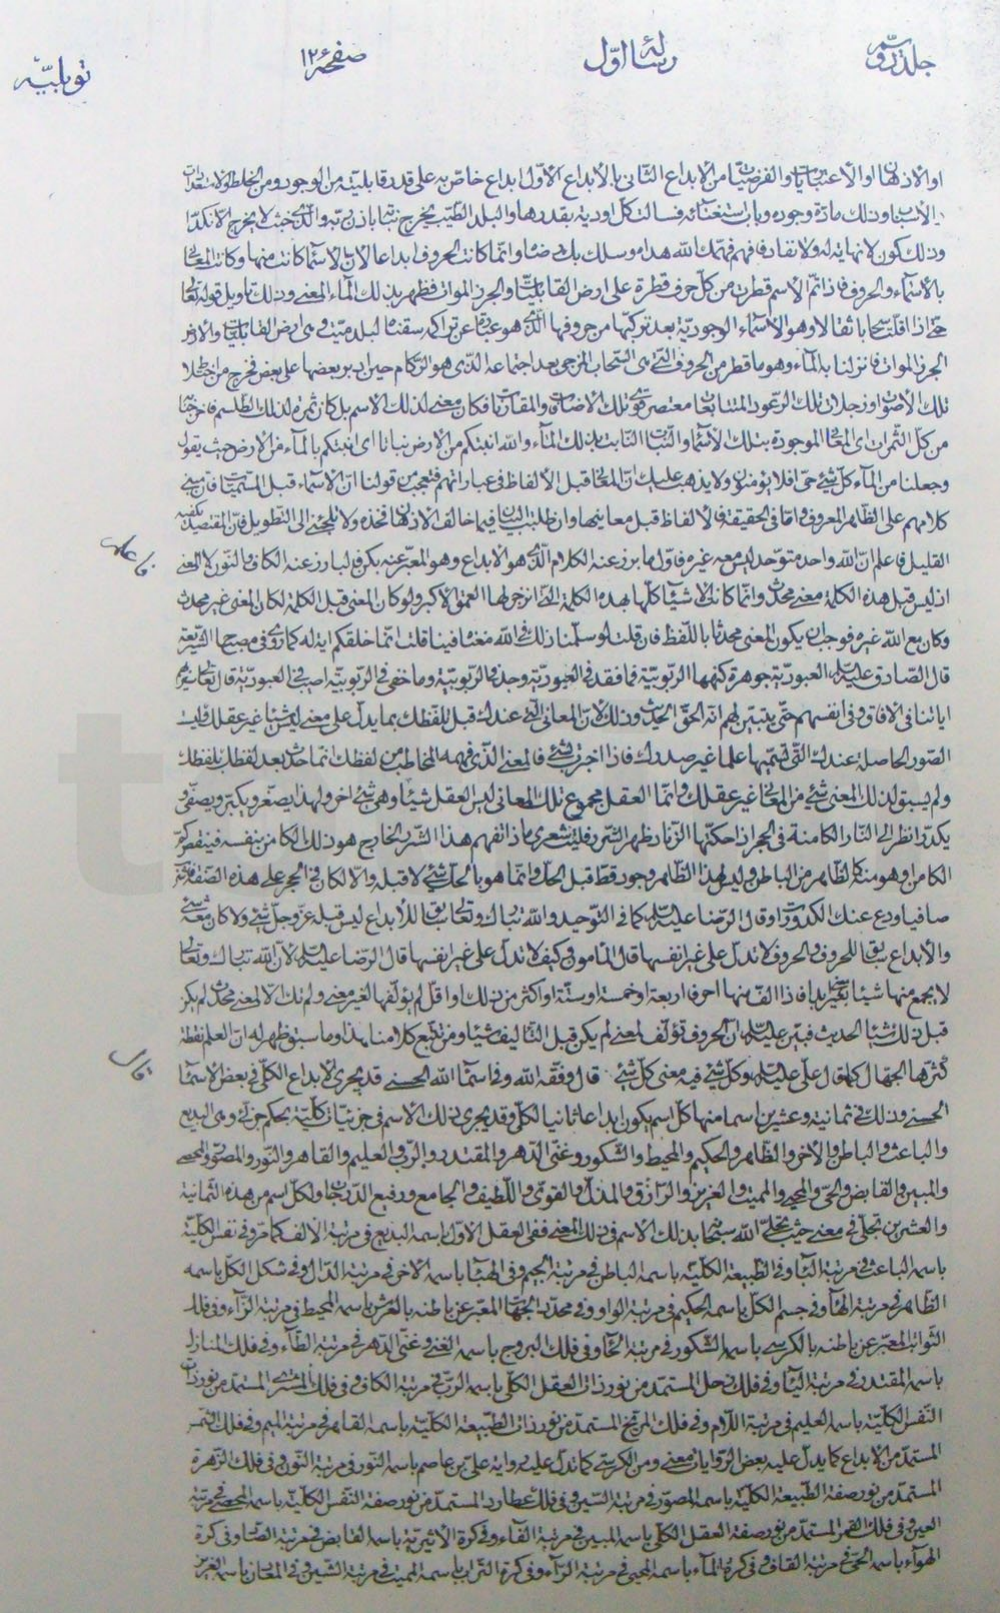 جلد دوم رسالة اول صفحه ١٢ توبليّه
او الأذهان او الأعتباريّات والفرضيّات من الأبداع الثانى بالأبداع الأوّل ابداع خاصّ به على قدر قابليته من الوجود ومن الخلط والاستعدادات
وذلك مادّة وجوده وباب استغنائه فسالت كل اودية بقدرها والبلد الطيّب يخرج نباته باذن ربّه والّذى خبث لا يخرج الّا نكدا
وذلك كون لا نهاية له ولا نفاد فافهم فهّمك الله هداه وسلك بك رضاه وانّما كانت الحروف ابداعا لانّ الأسماء كانت منها وكانت المعانى
بالأسماء والحروف فاذا تمّ الأسم قطرت من كلّ حرف قطرة على ارض القابليّات والجرز الموات فظهر بذلك الماء المعنى وذلك تأويل قوله تعالى
حتّى اذا اقلّت سحابا ثقالا وهو الأسماء الوجوديّة بعد تركّبها من حروفها الّذى هو عبارة عن تراكمه سقناه لبلد ميّت وهى ارض القابليّات والأرض
الجرز الموات فانزلنا به الماء وهو ما قطر من الحروف الّتى هى السّحاب المزجى بعد اجتماعه الّذى هو الرّكام حين ادبر بعضها على بعض فخرج من خلال
تلك الأصوات وزجلات تلك الرّعود المتتابعات معتصر قوى تلك الأضافات والمقارنات فكان معنى لذلك الاسم بل كان ثمرة لذلك الطلسم فاخرجنا
من كلّ الثّمرات اى المعانى الموجودة بتلك الأسماء والنّبات الثابت بذلك الماء والله انبتكم من الأرض نباتا اى انبتكم بالماء من الأرض حيث يقول
وجعلنا من الماء كل شئ حىّ افلا يؤمنون ولا يذهب عليك انّ المعانى قبل الألفاظ فى عباراتهم فتعجب من قولنا انّ الأسماء قبل المسمّيات فانّ مبنى
كلامهم على الظّاهر المعروف وامّا فى الحقيقة فالألفاظ قبل معانيها وان طلبت البيان فيما خالف الاذهان فخذه ولا تلجئنى الى التطويل فانّ المقتصد يكفيه
القليل فاعلم انّ الله واحد متوحّد ليس معه غيره فاوّل ما برز عنه الكلام الّذى هو الابداع وهو المعبّر عنه بكن فالبارز عنه الكاف والنّون لا المعنى
اذ ليس قبل هذه الكلمة معنى محدث وانّما كانت الأشياء كلّها بهذه الكلمة الّتى انزجر لها العمق الأكبر ولو كان المعنى قبل الكلمة لكان المعنى غير محدث
وكان مع الله غيره فوجب ان يكون المعنى محدثا باللّفظ فان قلت لو سلّمنا ذلك فى الله منعناه فينا قلت انّما خلقكم اية له كما روى فى مصباح الشّريعة
قال الصّادق عليه السّلام العبوديّة جوهرة كنهها الرّبوبيّة فما فقد فى العبوديّة وجد فى الرّبوبيّة وما خفى فى الرّبوبيّة اصيب فى العبوديّة قال تعالى سنريهم
اياتنا فى الافاق وفى انفسهم حتّى يتبيّن لهم انّه الحقّ الحديث وذلك لانّ المعانى الّتى عندك قبل تلفّظك بما يدلّ على معنى ليس شيئا غير عقلك قلت
الصّور الحاصلة عندك الّتى تسمّيها علما غير صدرك فاذا اخبرت بشئ فالمعنى الّذى فهمه المخاطب من لفظك انّما حدث بعد لفظك بلفظك
ولم يسبق لذلك المعنى شئ من المعانى غير عقلك وانّما العقل مجموع تلك المعانى ليس العقل شيئا وهى شئ اخر ولهذا يصغر ويكبر ويصفو
يكدر انظر الى النّار الكامنة فى الحجر اذا حكّتها الزّناد ظهر الشّرر فليت شعرى ماذا تفهم هذا الشّرر الخارج هو ذلك الكامن بنفسه فينقص
الكامن وهو منه كالظاهر من الباطن وليس لهذا الظّاهر وجود قطّ قبل الحكّ وانّما هو بالحكّ شئ لا قبله والّا لكان فى الحجر على هذه الصّفة
صافيا ودع عنك الكدورات وقال الرّضا عليه السّلام كما فى التّوحيد والله تبارك وتعالى سابق للأبداع ليس قبله عزّ وجلّ شئ ولا كان معه شئ
والأبداع سابق للحروف والحروف لا تدلّ على غير انفسها قال المأمون وكيف لا تدلّ على غير انفسها قال الرّضا عليه السّلام لانّ الله تبارك وتعالى
لا يجمع منها شيئا بغير معنى ابدا فاذا الّف منها احرفا اربعة او خمسة او ستّة او اكثر من ذلك او اقلّ لم يؤلّفها لغير معنى ولم تك الّا لمعنى محدث لم يكن
قبل ذلك شيئا الحديث فبيّن عليه السّلام انّ الحروف تؤلّف لمعنى لم يكن قبل التّأليف شيئا ومن تتبّع كلامنا هذا وما سبق ظهر له انّ العلم نقطة
كثّرها الجهّال كما قال على عليه السّلام وكلّ شئ فيه معنى كلّ شئ قال وفّقه الله وفى اسماء الله الحسنى قد يجرى الابداع الكلّى فى بعض الأسماء
الحسنى وذلك فى ثمانية وعشرين اسما منها كلّ اسم يكون ابداعا ثانيا لكلّى وقد يجرى ذلك الاسم فى جزئيّات كليّة بحكم جزئى وهى البديع
والباعث والباطن والأخر والظّاهر والحكيم والمحيط والشّكور وغنىّ الدّهر والمقتدر والرّب والعليم والقاهر والنّور والمصوّر والمحصى
والمبين والقابض والحىّ والمحيى والمميت والعزيز والرّزّاق والمذلّ والقوىّ واللّطيف والجامع ورفيع الدّرجات ولكلّ اسم من هذه الثّمانية
والعشرين تجلّى فى معنى حيث تجلّى الله سبحانه بذلك الاسم فى ذلك المعنى ففى العقل الاوّل باسمه البديع فى مرتبة الالف كما مرّ وفى نفس الكليّة
باسمه الباعث فى مرتبة الباء وفى الطّبيعة الكليّة باسمه الباطن فى مرتبة الجيم وفى الهباء باسمه الاخر فى مرتبة الدّال وفى شكل الكلّ باسمه
الظّاهر فى مرتبة الهاء وفى جسم الكلّ باسمه الحكيم فى مرتبة الواو وفى محدّد الجهات المعبّر عن باطنه بالعرش باسمه المحيط فى مرتبة الزّاء وفى فلك
الثّوابت المعبّر عن باطنه بالكرسى باسمه الشّكور فى مرتبة الحاء وفى فلك البروج باسمه الغنى وغنىّ الدّهر فى مرتبة الطّاء وفى فلك المنازل
باسمه المقتدر فى مرتبة الياء وفى فلك زحل المستمدّ من نور ذات العقل الكلّى باسمه الرّب فى مرتبة الكاف وفى فلك المشترى المستمدّ من نور ذات
النّفس الكليّة باسمه العليم فى مرتبة اللّام وفى فلك المرّيخ المستمدّ من نور ذات الطّبيعة الكليّة باسمه القاهر فى مرتبة الميم وفى فلك الشّمس
المستمدّ من الابداع كما يدلّ عليه بعض الرّوايات معنى ومن الكرسى كما تدلّ عليه رواية على بن عاصم باسمه النّور فى مرتبة النّون وفى فلك الزّهرة
المستمدّ من نور صفة الطّبيعة الكليّة باسمه المصوّر فى مرتبة السّين وفى فلك عطارد المستمدّ من نور صفة النّفس الكليّة باسمه المحصى فى مرتبة
العين وفى فلك القمر المستمدّ من نور صفة العقل الكلّى باسمه المبين فى مرتبة الفاء وفى كرة الأثيريّة باسمه القابض فى مرتبة الصّاد وفى كرة
الهواء باسمه الحىّ فى مرتبة القاف وفى كرة الماء باسمه المحيى فى مرتبة الرّاء وفى كرة التراب باسمه المميت فى مرتبة الشّين وفى المعادن باسمه العزيز
فاعلم
قال